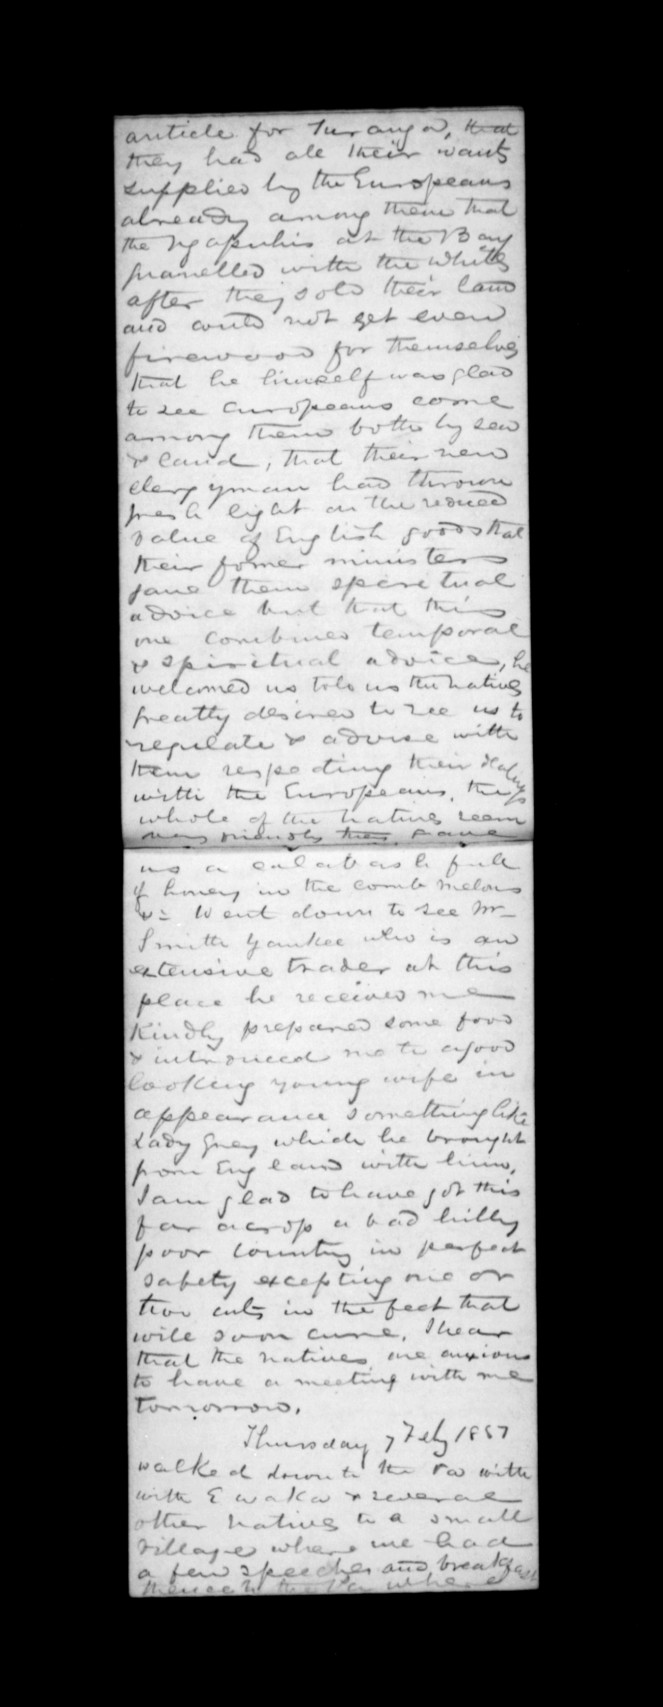 article for Turanga, that
they had all their wants
supplied by the Europeans
already among them that
the Ngapuhis at the Bay
quarelled with the Whites
after they sold their land
and could not get even
firewood for themselves
that he himself was glad
to see Europeans come
among them both by sea
& land, that their new
clergyman had thrown
fresh light on the reduced
value of English goods that
their former ministers
gave them spiritual
advice but that this
one combined temporal
& spiritual advice, he
welcomed us told us the natives
greatly desired to see us to
regulate & advise with
them respecting their dealings
with the Europeans, the
whole of the natives seem
very friendly they gave
us a calabash full
of honey in the comb melons
&c Went down to see Mr
Smith Yankee who is an
extensive trader at this
place he received me
kindly prepared some food
& introduced me to a good
looking young wife in
appearance something like
Lady Grey which he brought
from England with him,
I am glad to have got this
far across a bad hilly
poor country in perfect
safety excepting one or
two cuts in the feet that
will soon cure, I hear
that the natives are anxious
to have a meeting with me
tomorrow.
Thursday 7 Feby 1857
walked down to the Pa with
with E waka & several
other natives to a small
village where we had
a few speeches and breakfast
thence to the Pa where